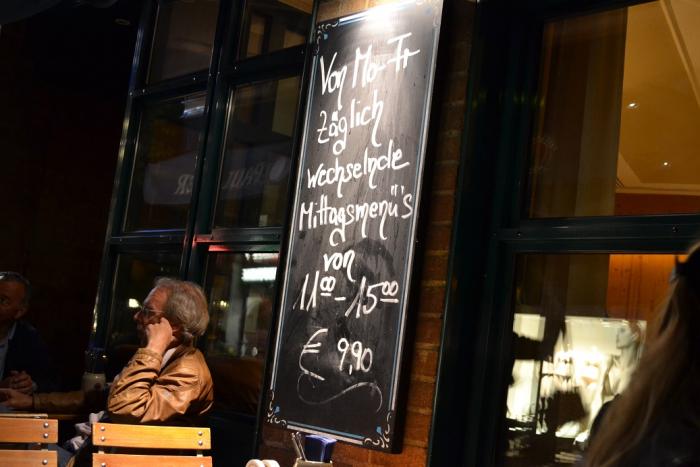 Von Mo-Fr
Zäglich
wechselnde
Mittagsmenü's
von
11⁰⁰-15⁰⁰
€ 9,90